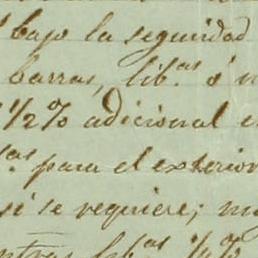 bajo la seguridad
barras, lib.as ó
1/2% adicional
as para el exterior
si se requiere;
lib.as 1/2%